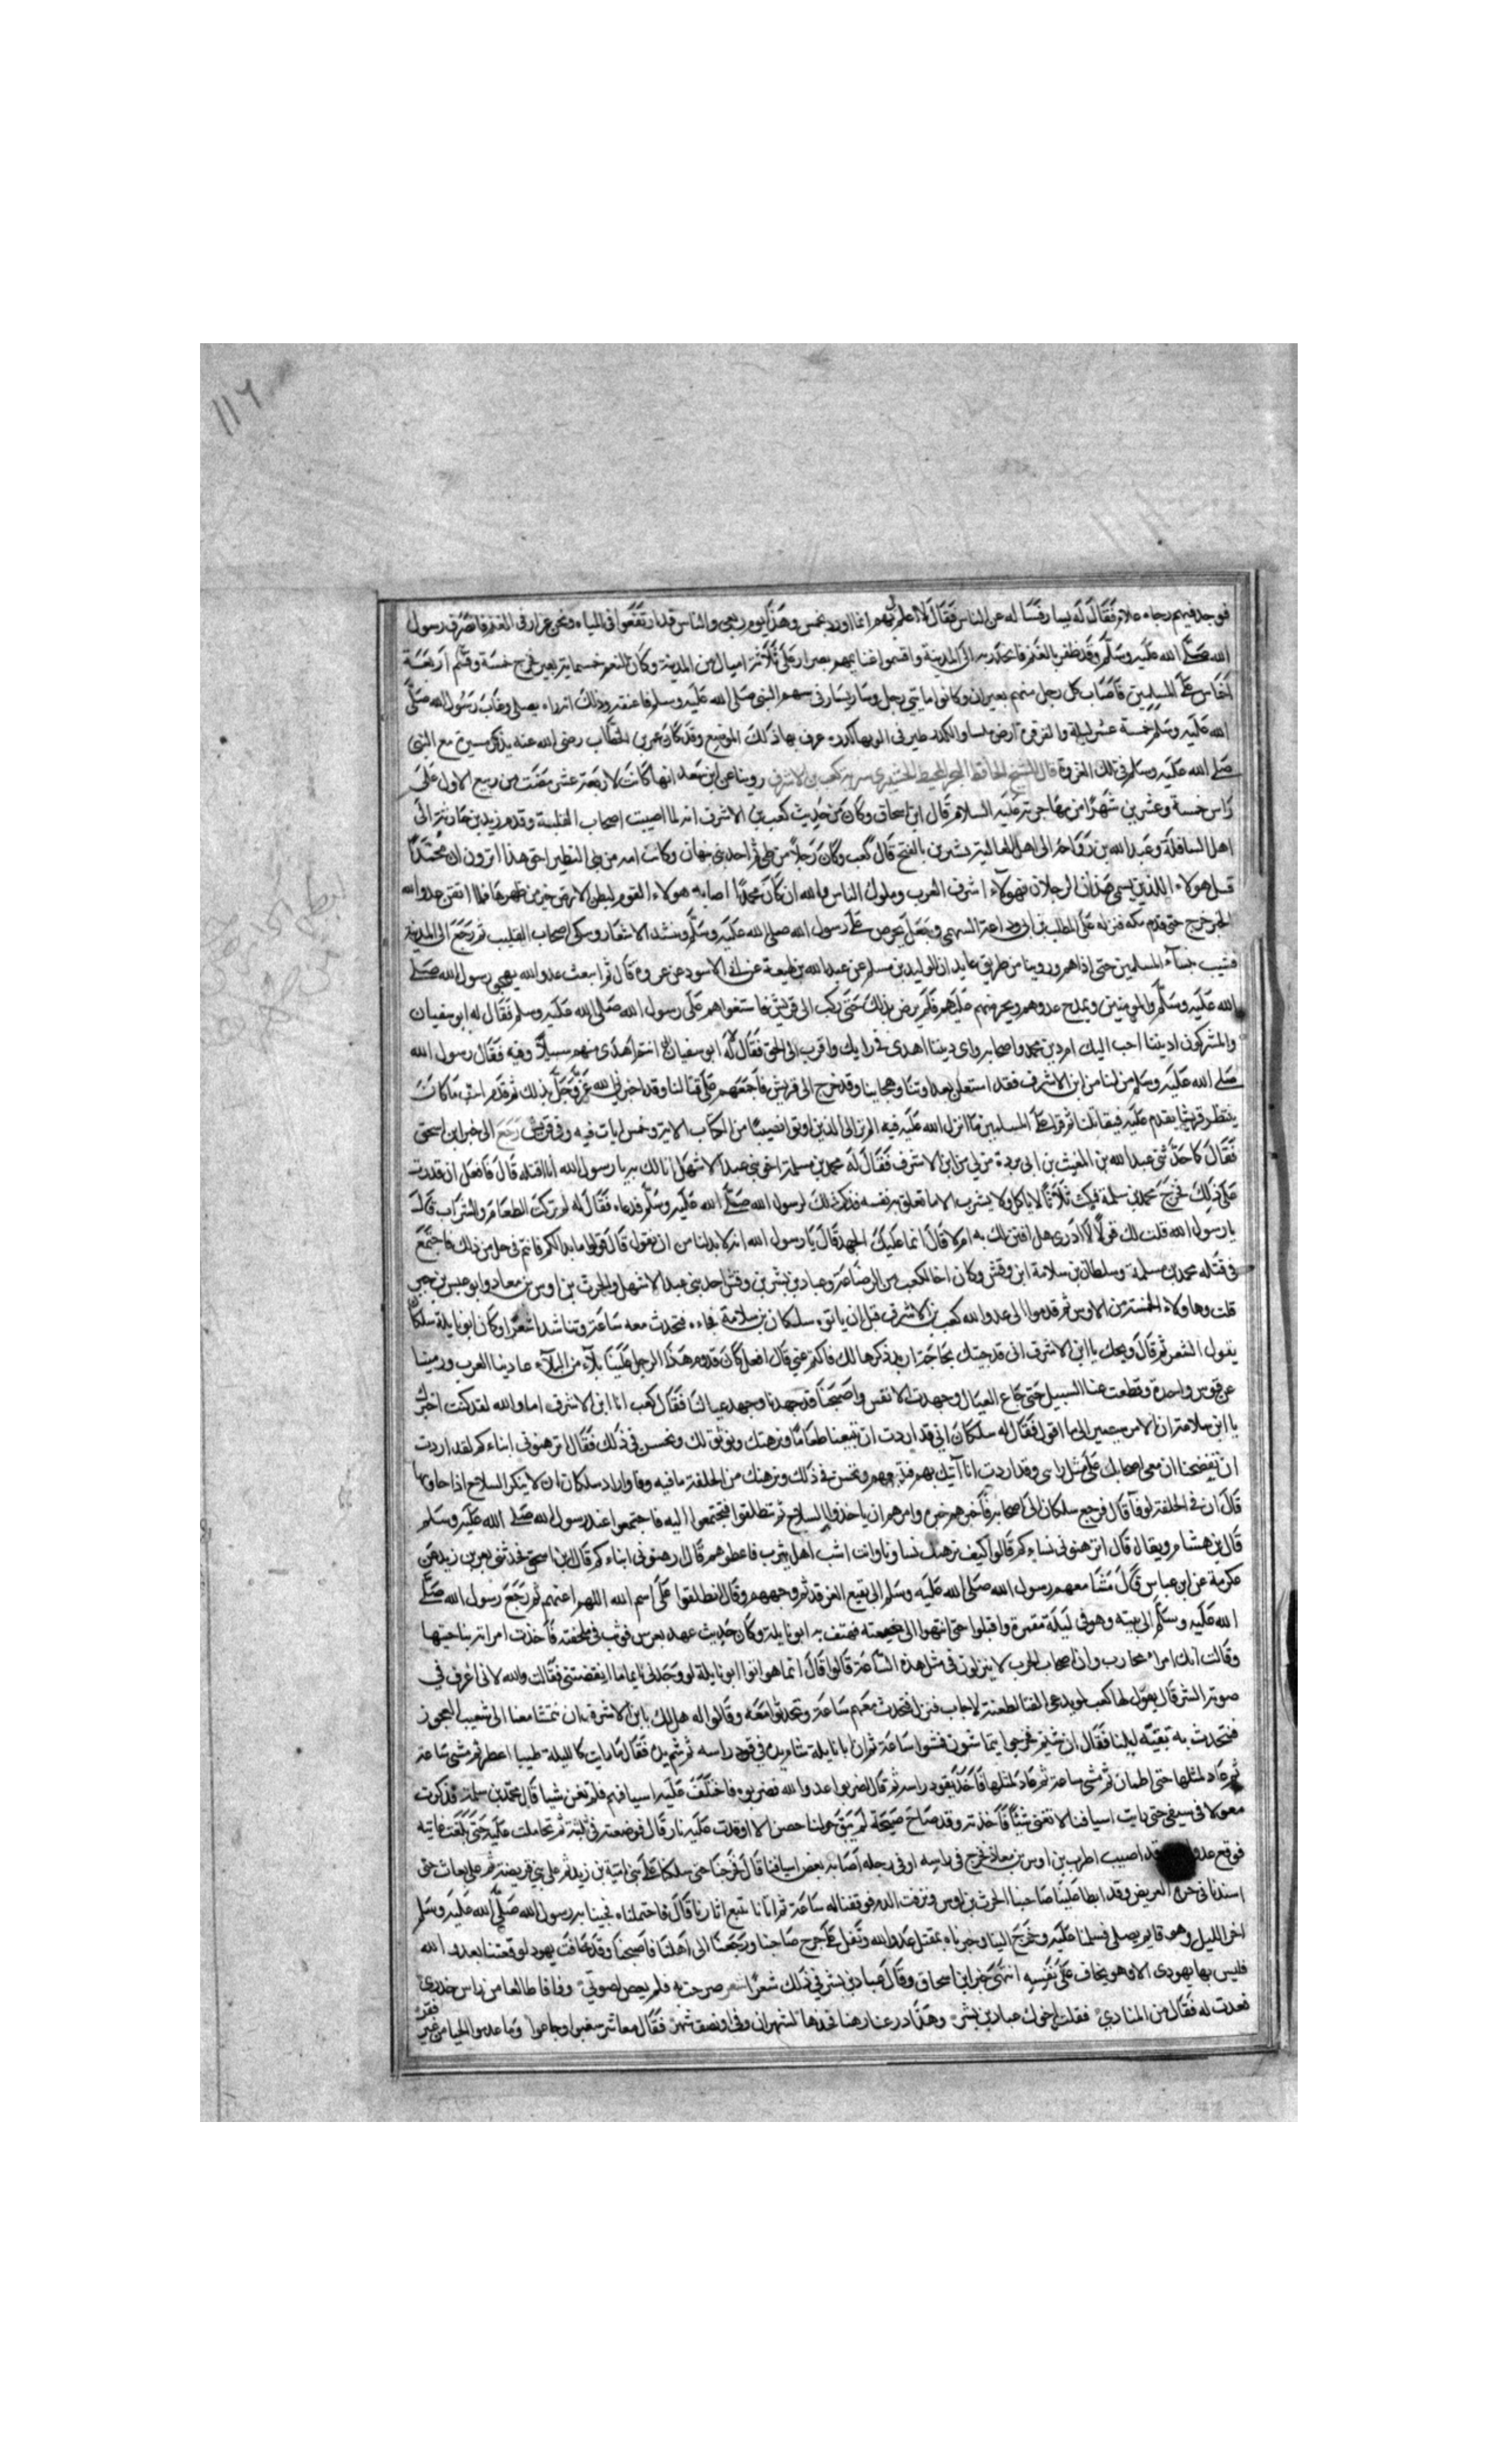 ١١٦
فوجد فيهم رجاء غلام فقال له يسار فسأله عن الناس فقال لا اعلم لى بهم انما اورد لخمس وهذا يوم ربعى والناس قد ارتفعوا فى المياه ونحن عزاب فى الغنم فانصرف رسول
الله صلى الله عليه وسلم وقد ظفر بالغنم فانحدر به الى المدينة واقتسموا غنايمهم بصرار على ثلاثة اميال من المدينة وكان النعم خمسماية بعير فخرج خمسه وقسم اربعة
اخماس على المسلمين فاصاب كل رجل منهم بعيران وكانوا مايتى رجل وصار يسار فى سهم النبى صلى الله عليه وسلم فاعتقه وذلك انه راه يصلى وغاب رسول الله صلى
الله عليه وسلم خمسة عشر ليلة والقرقرة ارض ملسا والكدر طير فى الوبها كدرة عرف بها ذلك الموضع وقد كان عمر بن الخطاب رضى الله عنه يذكر مسيره مع النبى
صلى الله عليه وسلم فى تلك الغزوة قال الشيخ الحافظ سرية كعب بن الاشرف روينا عن ابن سعد انها كانت لاربعة عشر مضت من ربيع الاول على
راس خمسة وعشرين شهرا من مهاجرته عليه السلام قال ابن اسحاق وكان من حديث كعب بن الاشرف انه لما اصيب اصحاب القليب وقدم زيد بن حارثة الى
اهل السافلة وعبد الله بن رواحة الى اهل العالية بشيرين بالفتح قال كعب وكان رجلا من طى ثم احد بنى نبهان وكانت امه من بنى النظير احق هذا اترون ان محمدا
قتل هولاء الذين يسمى هذان الرجلان فهولاء اشرف العرب وملوك الناس والله ان كان محمدا اصاب هولاء القوم لبطن الارض خير من ظهرها فلما اتقن عدو الله
الخبر خرج حتى قدم مكة فنزل على المطلب بن ابى وداعة السهمى وجعل يحرض على رسول الله صلى الله عليه وسلم وينشد الاشعار ويبكى اصحاب القليب ثم رجع الى المدينة
فشبب بنساء المسلمين حتى اذاهم وروينا من طريق عايد ان الوليد بن مسلم عن عبد الله بن لهيعة عن ابى الاسود عن عروة قال ثم انبعث عدو الله يهجو رسول الله صلى
الله عليه وسلم والمومنين ويمدح عدوهم ويحرضهم عليهم فلم يرض بذلك حتى ركب الى قريش فاستغواهم على رسول الله صلى الله عليه وسلم فقال له ابو سفيان
والمشركون اديننا احب اليك ام دين محمد واصحابه واى ديننا اهدى فى رايك واقرب الى الحق فقال له ابو سفيان انتم اهدى منهم سبيلا وفيه فقال رسول الله
صلى الله عليه وسلم من لنا من ابن الاشرف فقد استعلن بعداوتنا وهجاينا وقد خرج الى قريش فاجمعهم على قتالنا وقد اخبرنى الله عز وجل بذلك ثم قدم اخبث ما كانت
ينتظر قريشا تقدم عليه فيقاتلنا ثم قرا على المسلمين ما انزل الله عليه فيه الم تر الى الذين اوتوا نصيبا من الكتاب الاية وخمس ايات فيه وفى قريش رجع الى خبر ابن اسحق
فقال كما حدثنى عبد الله بن المغيث بن ابى بردة من لى من ابن الاشرف فقال له محمد بن مسلمة اخو بنى عبد الاشهل انا لك به يا رسول الله انا اقتله قال فافعل ان قدرت
على ذلك فخرج محمد بن مسلمة فمكث ثلاثا لا ياكل ولا يشرب الا ما تعلق به نفسه فذكر ذلك لرسول الله صلى الله عليه وسلم فدعاه فقال له لم تركت الطعام والشراب قال
يا رسول الله قلت لك قولا لا ادرى هل افين لك به ام لا قال انما عليك الجهد قال يا رسول الله انه لا بد لنا من ان نقول قال قولوا ما بدا لكم فانتم فى حل من ذلك فاجتمع
فى قتله محمد بن مسلمة وسلطان بن سلامة ابن وقش وكان اخا لكعب من الرضاعة وعباد بن بشر بن وقش احد بنى عبد الاشهل والحرث بن اوس بن معاد وابو عبس بن جبر
قلت وهاولاء الخمسة من الاوس ثم قدموا الى عدو الله كعب بن الاشرف قبل ان ياتوه سلكان بن سلامة فجاءه فتحدث معه ساعة وتناشدا شعرا وكان ابو نايلة سلكان
يقول الشعر ثم قال ويحك يا ابن الاشرف انى قد جيتك بحاجة اريد ذكرها لك فاكتم عنى قال افعل كان قدوم هذا الرجل علينا بلاء من البلاء عادتنا العرب ورمتنا
عن قوس واحدة وقطعت عنا السبيل حتى جاع العيال وجهدت الانفس واصبحنا قد جهدنا وجهد عيالنا فقال كعب انا ابن الاشرف اما والله لقد كنت اخبرك
يا ابن سلامة ان الامر سيصير الى ما اقول فقال له سلكان انى قد اردت ان تبيعنا طعاما ونرهنك ونوثق لك ونحسن فى ذلك فقال ترهنونى ابناءكم لقد اردت
ان تفضحنا ان معى اصحابك على مثل رايى وقد اردت ان آتيك بهم فتبيعهم وتحسن فى ذلك ونرهنك من الحلقة ما فيه وفا واراد سلكان ان لا ينكر السلاح اذا جاؤا بها
قال ان فى الحلقة لوفآ قال فرجع سلكان الى اصحابه فاخبرهم خبره وامرهم ان ياخذوا السلاح ثم تطلقوا فيجتمعوا اليه فاجتمعوا عند رسول الله صلى الله عليه وسلم
قال بن هشام ويقال قال اترهنونى نساءكم قالوا كيف نرهنك نساونا وانت اشب اهل يثرب فاعطرهم قال ارهنونى ابناءكم قال ابن اسحق فحدثنى ثور بن زيد عن
عكرمة عن ابن عباس قال مشا معهم رسول الله صلى الله عليه وسلم الى بقيع الغرقد ثم وجههم وقال انطلقوا على اسم الله اللهم اعنهم ثم رجع رسول الله صلى
الله عليه وسلم الى بيته وهو فى ليلة مقمرة واقبلوا حتى انتهوا الى حصنه فهتف به ابو نايلة وكان حديث عهد بعرس فوثب فى ملحفته فاخذت امراته بناحيتها
وقالت انك امراء محارب وان اصحاب الحرب لا ينزلون فى مثل هذه الساعة قالوا قال انما هو ابو نايلة لو وجدنى نايما ما ايقضتنى فقالت والله لانى اعرف فى
صوته الشر قال يقول لها كعب لو يدعى الفتا لطعنة لاجاب فنزل فتحدث معهم ساعة وتحدثوا معه وقالوا له هل لك يا ابن الاشرف ان نتمشا معنا الى شعب العجوز
فنتحدث به بقية ليلنا فقال ان شيتم فخرجوا يتماشون فمشوا ساعة ثم ان ابا نايلة شام يده فى فود راسه ثم شم يده فقال ما رايت كالليلة طيبا اعطر ثم مشى ساعة
ثم عاد لمثلها حتى اطمان ثم مشى ساعة ثم عاد لمثلها فاخذ بفود راسه ثم قال اضربوا عدو الله فضربوه فاختلفت عليه اسيافهم فلم تغن شيا قال محمد بن مسلمة فذكرت
معولا فى سيفى حين رايت اسيافنا لا تغنى شيئا فاخذته وقد صاح صيحة لم يبق حولنا حصن الا اوقدت عليه نار قال فوضعته فى ثنته ثم تحاملت عليه حتى بلغت عانيه
فوقع عدو قد اصيب الحرث بن اوس بن معاذ فجرح فى راسه او فى رجله اصابه بعض اسيافنا قال فخرجنا حتى سلكنا على بنى امية بن زيد ثم على بنى قريضة ثم على بعاث حتى
اسندنا فى حرة العريض وقد ابطا علينا صاحبنا الحرث بن اوس ونزفت الدم فوقفنا له ساعة ثم اتانا يتبع اثارنا قال فاحتملناه فجينا به رسول الله صلى الله عليه وسلم
اخر الليل وهو قايم يصلى فسلمنا عليه وخرج الينا وخبرناه بمقتل عدو الله وتفل على جرح صاحبنا ورجعنا الى اهلنا فاصبحنا وقد خافت يهود لوقعتنا بعدو الله
فليس بها يهودى الا وهو يخاف على نفسه انتهى خبر ابن اسحاق وقال عباد بن بشر فى ذلك شعرا صرخت به فلم يعرض لصوتى ووافا طالعا من راس خدرى
فعدت له فقال من المنادى فقلت اخوك عباد بن بشر وهذا درعنا رهنا فخذها لشهران وفى او نصف شهر فقال معاشر سغبوا وجاعوا وما عدموا الغنا من غير فقر